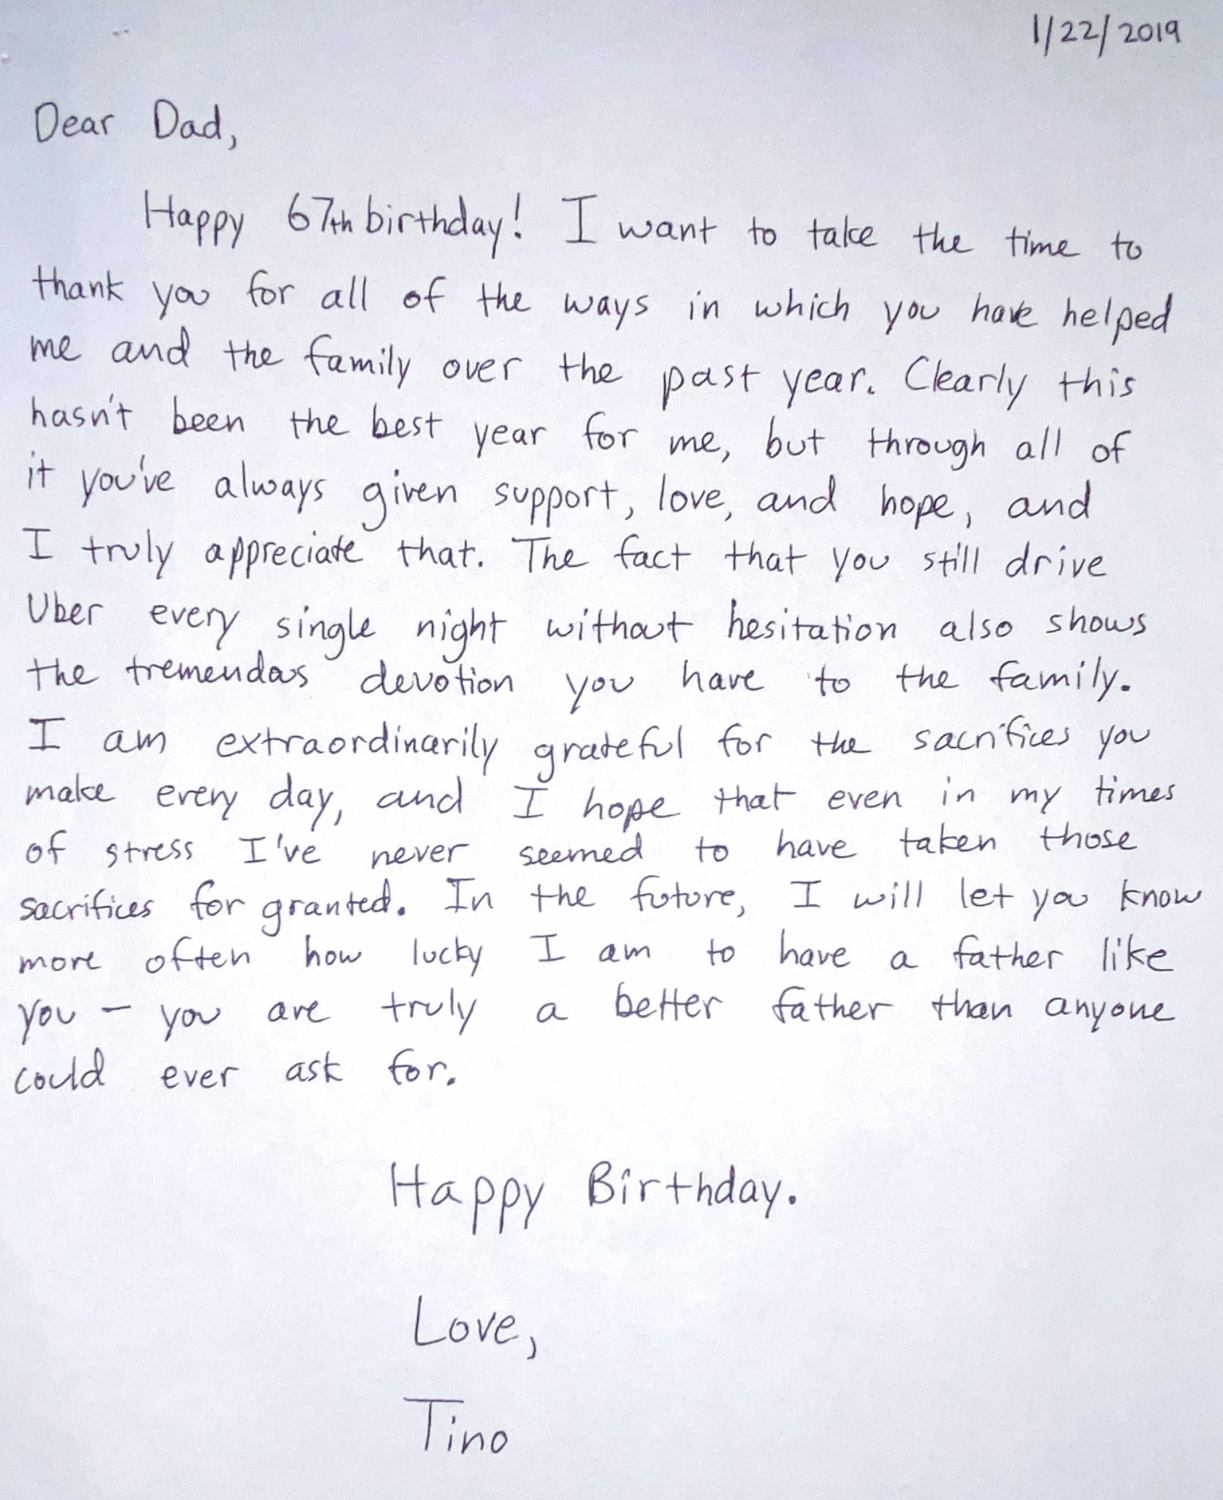 1/22/2019
Dear Dad,
Happy 67th birthday! I want to take the time to
thank you for all of the ways in which you have helped
me and the family over the past year. Clearly this
hasn't been the best year for me, but through all of
it you've always given support, love, and hope, and
I truly appreciate that. The fact that you still drive
Uber every single night without hesitation also shows
the tremendous devotion you have to the family.
I am extraordinarily grateful for the sacrifices you
make every day, and I hope that even in my times
of stress I've never seemed to have taken those
sacrifices for granted. In the future, I will let you know
more often how lucky I am to have a father like
you – you are truly a better father than anyone
could ever ask for.
Happy Birthday.
Love,
Tino